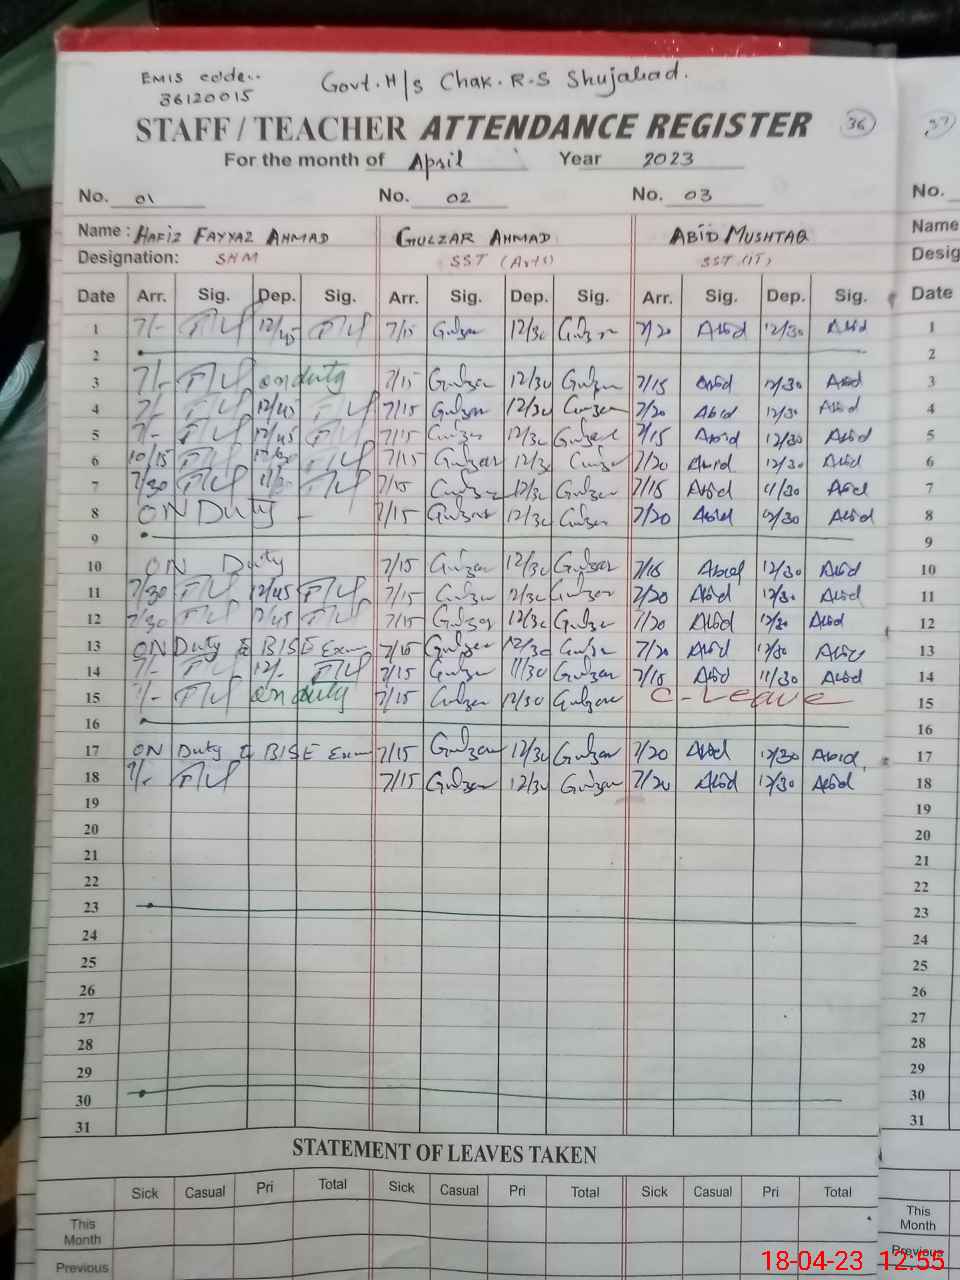 EMIS code..
36120015
Govt. H/S Chak. R.S Shujabad.
STAFF / TEACHER ATTENDANCE REGISTER 36 37
For the month of April Year 2023
No. 01 No. 02 No. 03 No.
Name : HAFIZ FAYYAZ AHMAD GULZAR AHMAD ABID MUSHTAQ Name
Designation: SHM SST (Arts) SST (IT) Desig
Date Arr. Sig. Dep. Sig. Arr. Sig. Dep. Sig. Arr. Sig. Dep. Sig. Date
1 7/- 12/45 7/15 Gulzar 12/30 Gulzar 7/20 Abid 12/30 Abid 1
2 2
3 7/- on duty 7/15 Gulzar 12/30 Gulzar 7/15 Abid 12/30 Abid 3
4 7/- 12/45 7/15 Gulzar 12/30 Gulzar 7/20 Abid 12/30 Abid 4
5 7/- 12/45 7/15 Gulzar 12/30 Gulzar 7/15 Abid 12/30 Abid 5
6 10/15 7/15 Gulzar 12/30 Gulzar 7/20 Abid 12/30 Abid 6
7 7/30 7/15 Gulzar Gulzar 7/15 Abid 11/30 Abid 7
8 ON Duty 7/15 Gulzar 12/30 Gulzar 7/20 Abid 12/30 Abid 8
9 9
10 ON Duty 7/15 Gulzar 12/30 Gulzar 7/15 Abid 12/30 Abid 10
11 7/30 12/45 7/15 Gulzar 12/30 Gulzar 7/20 Abid 12/30 Abid 11
12 7/30 12/45 7/15 Gulzar 12/30 Gulzar 7/20 Abid 12/30 Abid 12
13 ON Duty BISE Exam 7/15 Gulzar 12/30 Gulzar 7/20 Abid 12/30 Abid 13
14 7/- 12/- 7/15 Gulzar 11/30 Gulzar 7/15 Abid 11/30 Abid 14
15 7/- on duty 7/15 Gulzar 12/30 Gulzar C-Leave 15
16 16
17 ON Duty BISE Exam 7/15 Gulzar 12/30 Gulzar 7/20 Abid 12/30 Abid 17
18 7/- 7/15 Gulzar 12/30 Gulzar 7/20 Abid 12/30 Abid 18
19 19
20 20
21 21
22 22
23 23
24 24
25 25
26 26
27 27
28 28
29 29
30 30
31 31
STATEMENT OF LEAVES TAKEN
Sick Casual Pri Total Sick Casual Pri Total Sick Casual Pri Total
This Month This Month
Previous Previous
18-04-23 12.55